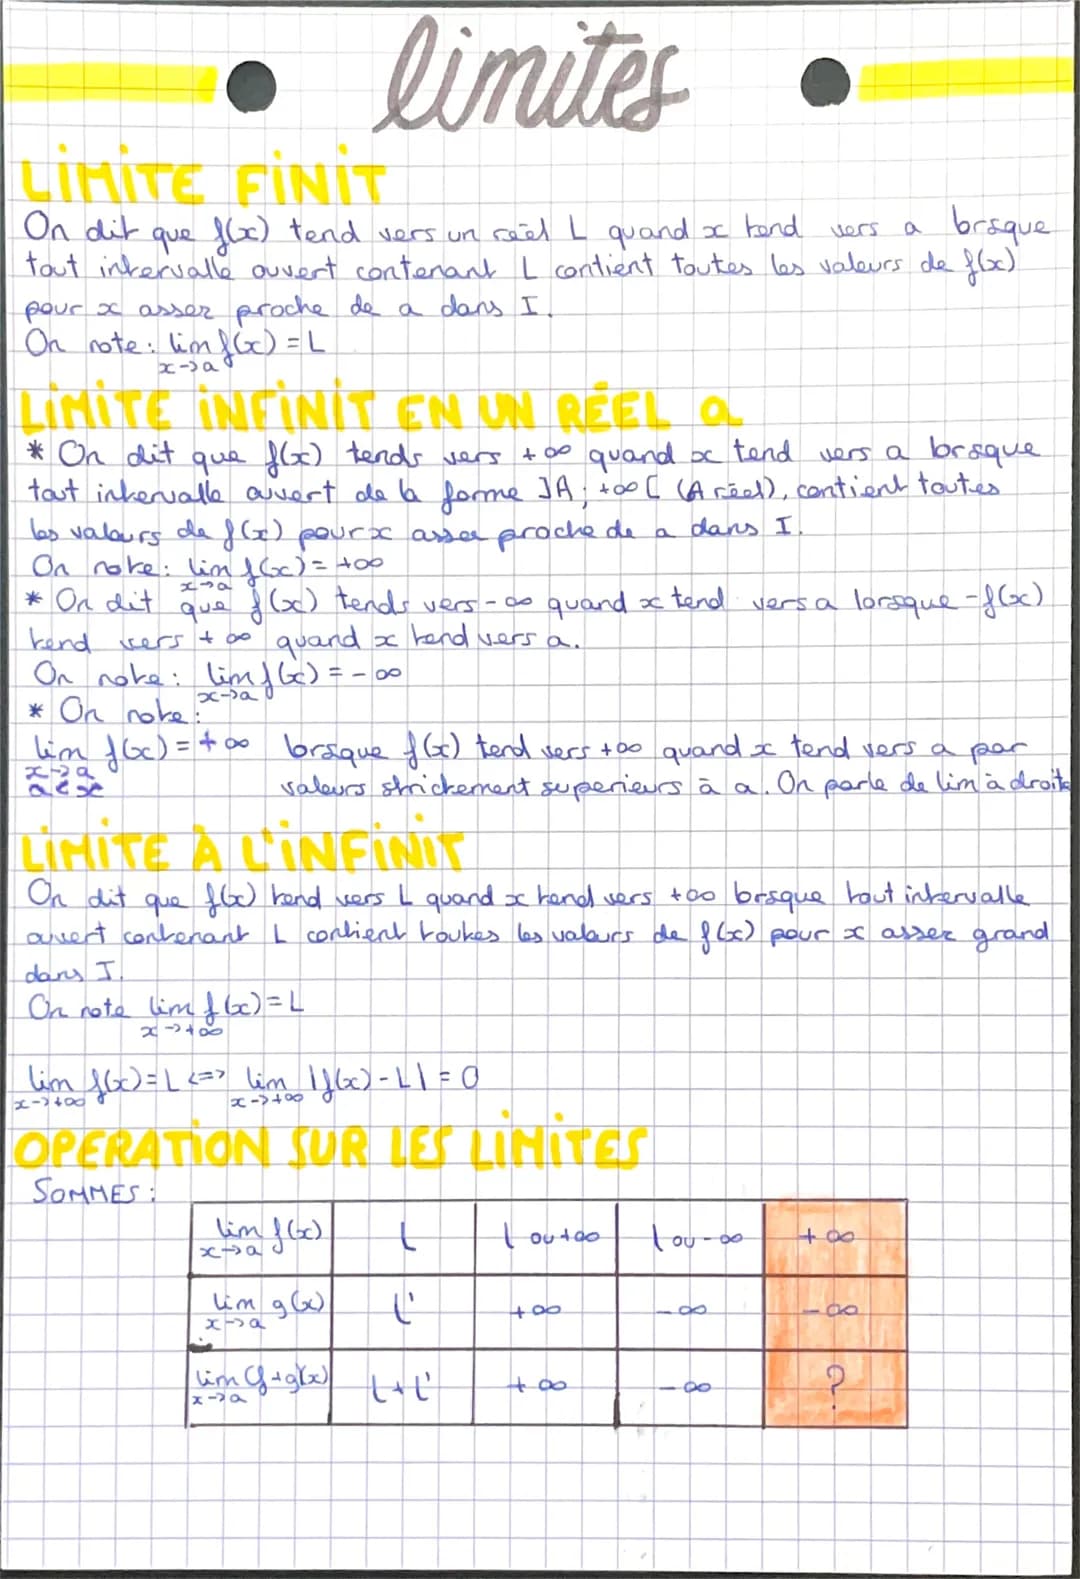 limites
LIMITE FINIT
On dit que f(x) tend vers un réel L quand x tend vers a lorsque
tout intervalle ouvert contenant L contient toutes les valeurs de f(x)
pour x assez proche de a dans I.
On note : lim f(x) = L
x→a
LIMITE INFINIT EN UN RÉEL a
* On dit que f(x) tends vers +∞ quand x tend vers a lorsque
tout intervalle ouvert de la forme ]A ; +∞[ (A réel), contient toutes
les valeurs de f(x) pour x assez proche de a dans I.
On note : lim f(x) = +∞
x→a
* On dit que f(x) tends vers -∞ quand x tend vers a lorsque -f(x)
tend vers +∞ quand x tend vers a.
On note : lim f(x) = -∞
x→a
* On note :
lim f(x) = +∞ lorsque f(x) tend vers +∞ quand x tend vers a par
x→a
a<x valeurs strictement superieurs à a. On parle de lim à droite
LIMITE À L'INFINIT
On dit que f(x) tend vers L quand x tend vers +∞ lorsque tout intervalle
ouvert contenant L contient toutes les valeurs de f(x) pour x assez grand
dans I.
On note lim f(x) = L
x→+∞
lim f(x) = L <=> lim |f(x) - L| = 0
x→+∞ x→+∞
OPERATION SUR LES LIMITES
SOMMES :
lim f(x) L L ou +∞ L ou -∞ +∞
x→a
lim g(x) L' +∞ -∞ -∞
x→a
lim (f+g)(x) L+L' +∞ -∞ ?
x→a